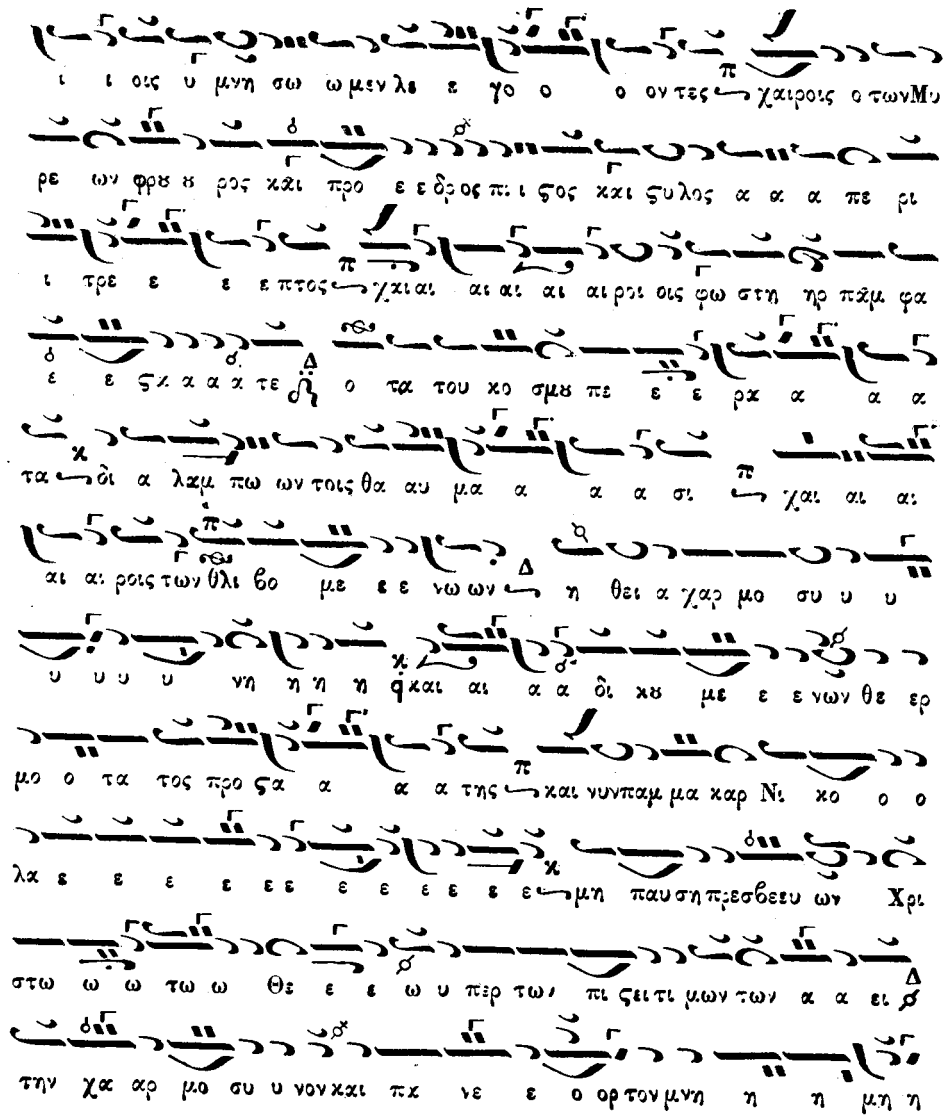 ι ι οις υ μνη σω ω μεν λε ε γο ο ο ον τες χαιροις ο των Μυ
ρε ων φρȣ ȣ ρος και προ ε ε δρος πι ι ϛος και ϛυλος α α α πε ρι
ι τρε ε ε ε πτος χαι αι αι αι αι αι ροι οις φω στη ηρ παμ φα
ε ε ϛα α α α τε Δ ο τα του κο σμȣ πε ε ε ρα α α α
τα δι α λαμ πω ων τοις θα αυ μα α α α σι χαι αι αι
αι αι ροις των θλι βο με ε ε νω ων η θει α χαρ μο συ υ υ
υ υ υ υ νη η η η και αι α α δι κȣ με ε ε νων θε ερ
μο ο τα τος προ ϛα α α α της και νυν παμ μα καρ Νι κο ο ο
λα ε ε ε ε ε ε ε ε ε ε ε ε μη παυση πρεσβευ ων Χρι
στω ω ω τω ω Θε ε ε ω υ περ των πι ϛει τι μων των α α ει
την χα αρ μο συ υ νον και πα νε ε ο ορ τον μνη η η μη η